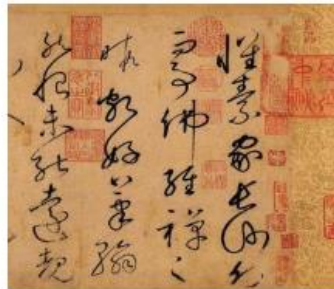 懷素家長沙幼而
事佛經禪之
暇頗好筆翰
然恨未能遠覩